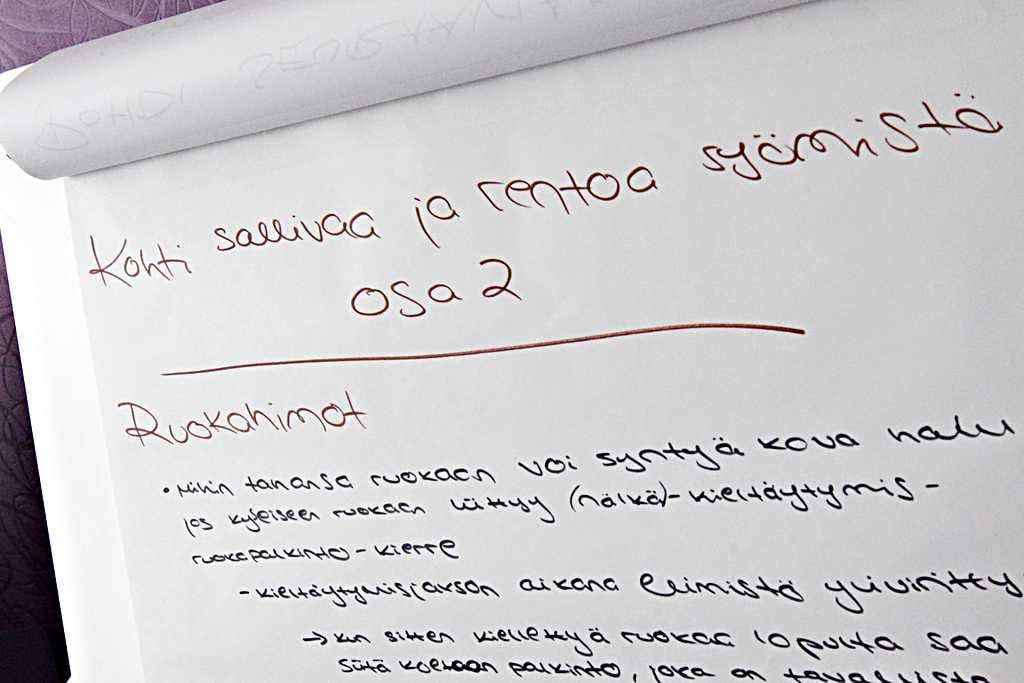 Kohti sallivaa ja rentoa syömistä
osa 2
Ruokahimot
• Mihin tahansa ruokaan voi syntyä kova halu
jos kyseiseen ruokaan liittyy (nälkä)-kieltäytymis-
ruokapalkinto-kierre
- kieltäytymisjakson aikana elimistö ylivirittyy
→ kun sitten kiellettyä ruokaa lopulta saa
siitä koetaan palkinto, joka on tavallista